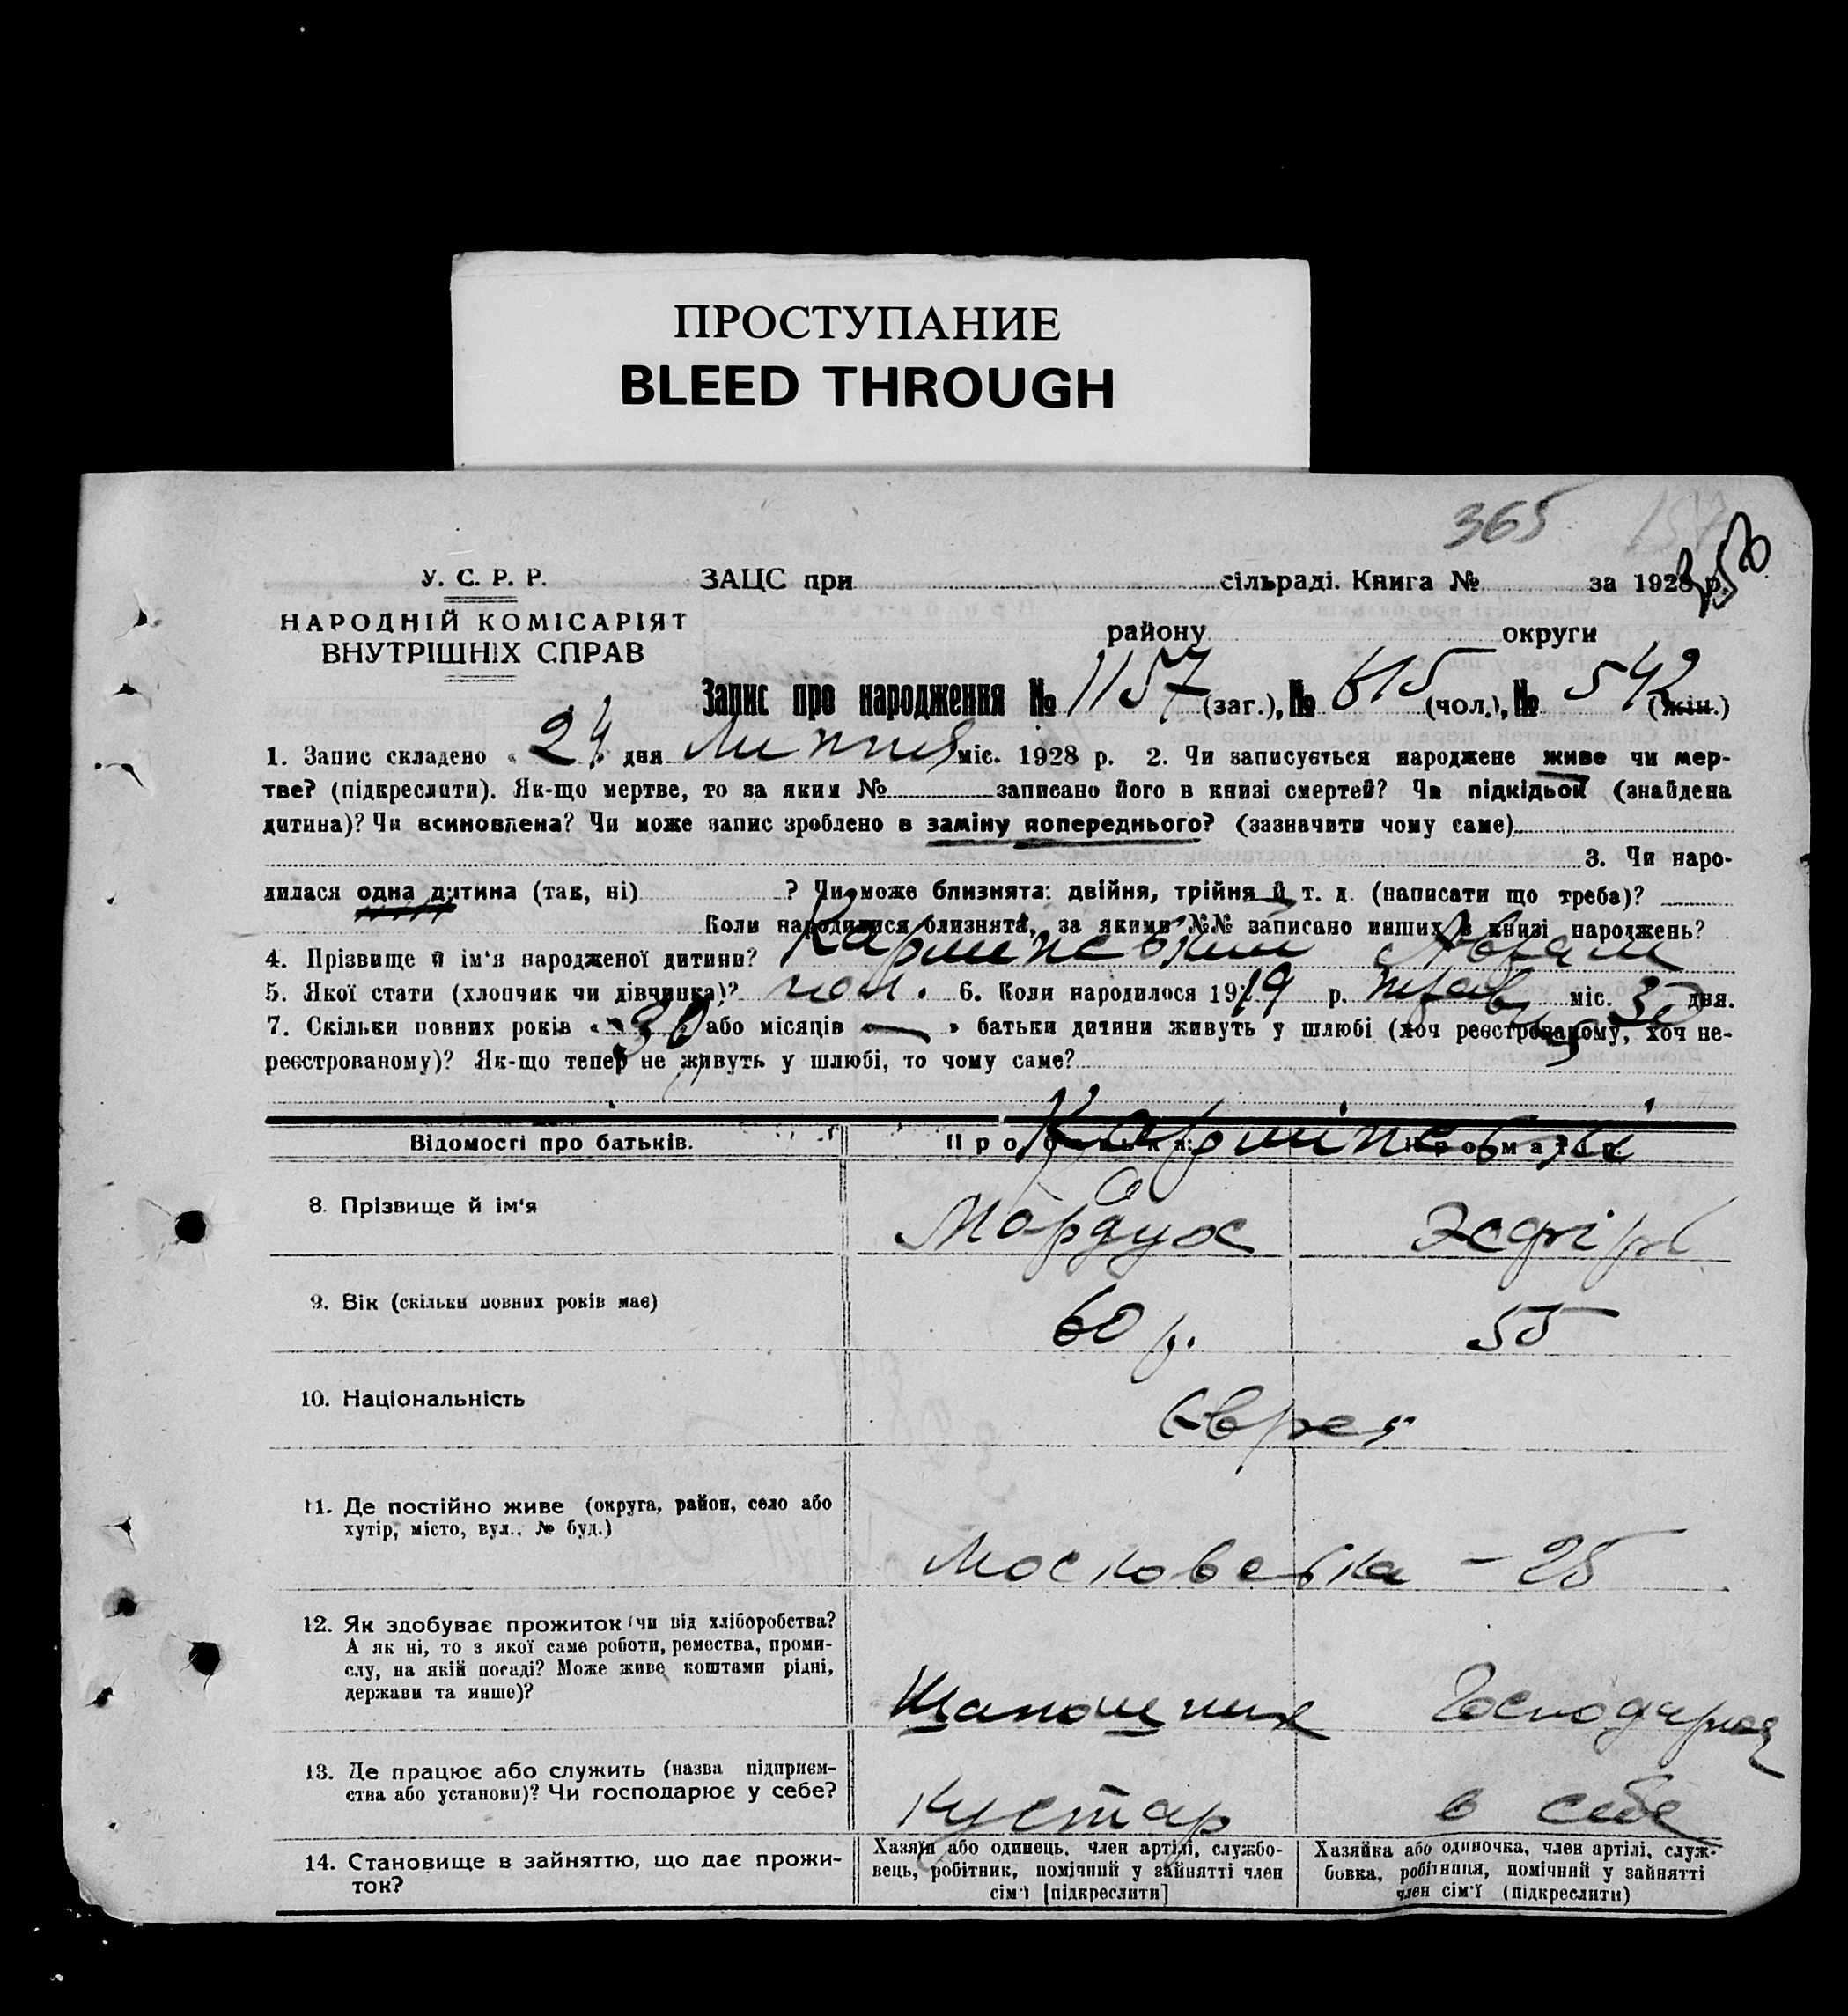 ПРОСТУПАНИЕ
BLEED THROUGH
365 157
350
У. С. Р. Р. ЗАЦС при сільраді. Книга № за 1928 р.
НАРОДНІЙ КОМІСАРІЯТ
ВНУТРІШНІХ СПРАВ
району округи
Запис про народження № 1157 (заг.), № 615 (чол.), № 542 (жін.)
1. Запис складено « 24 » дня Липня міс. 1928 р. 2. Чи записується народжене живе чи мер-
тве? (підкреслити). Як-що мертве, то за яким № записано його в книзі смертей? Чи підкідьок (знайдена
дитина)? Чи всиновлена? Чи може запис зроблено в заміну попереднього? (зазначити чому саме)
3. Чи наро-
дилася одна дитина (так, ні) ? Чи може близнята: двійня, трійня й т. д. (написати що треба)?
Коли народилися близнята, за якими №№ записано инших в книзі народжень?
4. Прізвище й ім'я народженої дитини? Абрам
5. Якої стати (хлопчик чи дівчинка)? чол. 6. Коли народилося 1919 р. міс. дня.
7. Скільки повних років « 30 » або місяців « — » батьки дитини живуть у шлюбі (хоч реєстрованому, хоч не-
реєстрованому)? Як-що тепер не живуть у шлюбі, то чому саме?
Відомості про батьків. Про батька: Про матір:
8. Прізвище й ім'я Мордух Эсфірь
9. Вік (скільки повних років має) 60 р. 55
10. Національність Євреї
11. Де постійно живе (округа, район, село або
хутір, місто, вул., № буд.)
Московська – 25
12. Як здобуває прожиток (чи від хліборобства?
А як ні, то з якої саме роботи, ремества, проми-
слу, на якій посаді? Може живе коштами рідні,
держави та инше)?
Шапошник Господарка
13. Де працює або служить (назва підприєм-
ства або установи)? Чи господарює у себе?
Кустар в себе
14. Становище в зайняттю, що дає прожи-
ток?
Хазяїн або одинець, член артілі, службо-
вець, робітник, помічний у зайнятті член
сім'ї [підкреслити]
Хазяйка або одиночка, член артілі, служ-
бовка, робітниця, помічний у зайнятті
член сім'ї (підкреслити)